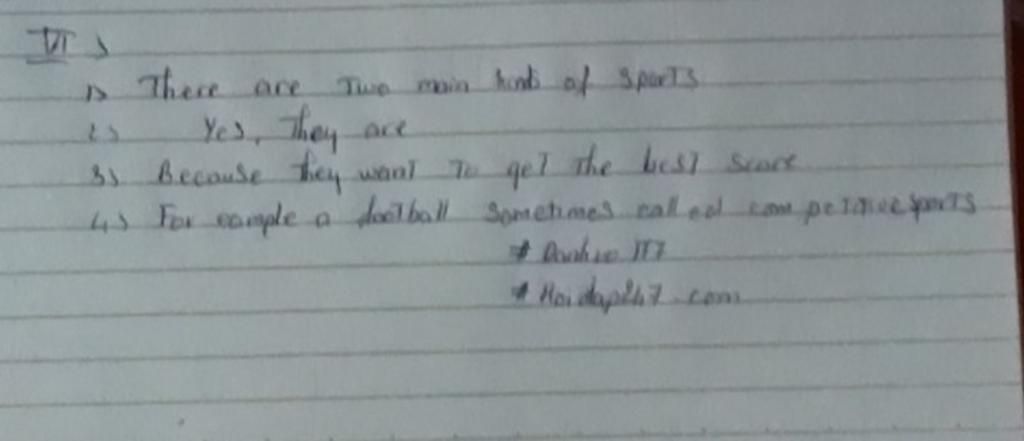 VI)
1) There are Two main kinds of sports
2) Yes, They are
3) Because they want To get The best score
4) For eample a dootball sometimes called competitive sports
* 
* Hoidap247.com